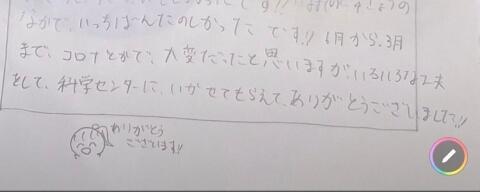 なかで、いっちばんたのしかったです!! 6月から、3月
まで、コロナとかで、大変だったと思いますが、いろいろな工夫
をして、科学センターに、いかせてもらえて、ありがとうございました!!
ありがとう
ございます!!